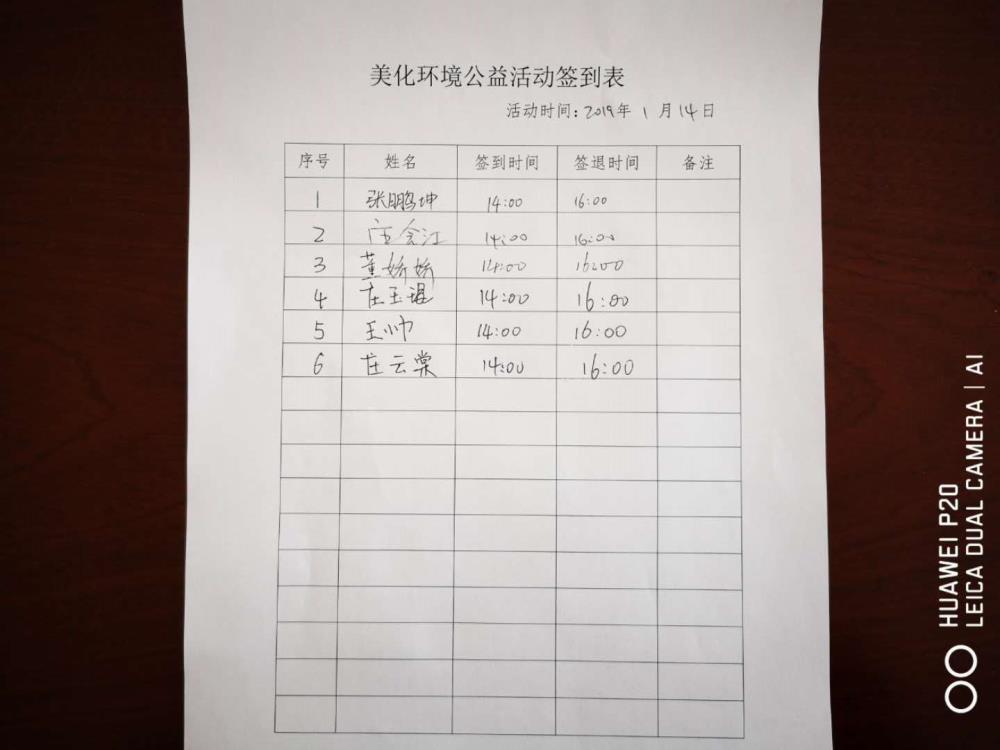 美化环境公益活动签到表
活动时间:2019年 1 月 14 日
序号 姓名 签到时间 签退时间 备注
1 张鹏坤 14:00 16:00
2 庄会江 14:00 16:00
3 董娇娇 14:00 16:00
4 庄玉琨 14:00 16:00
5 王小巾 14:00 16:00
6 庄云棠 14:00 16:00
HUAWEI P20
LEICA DUAL CAMERA | AI